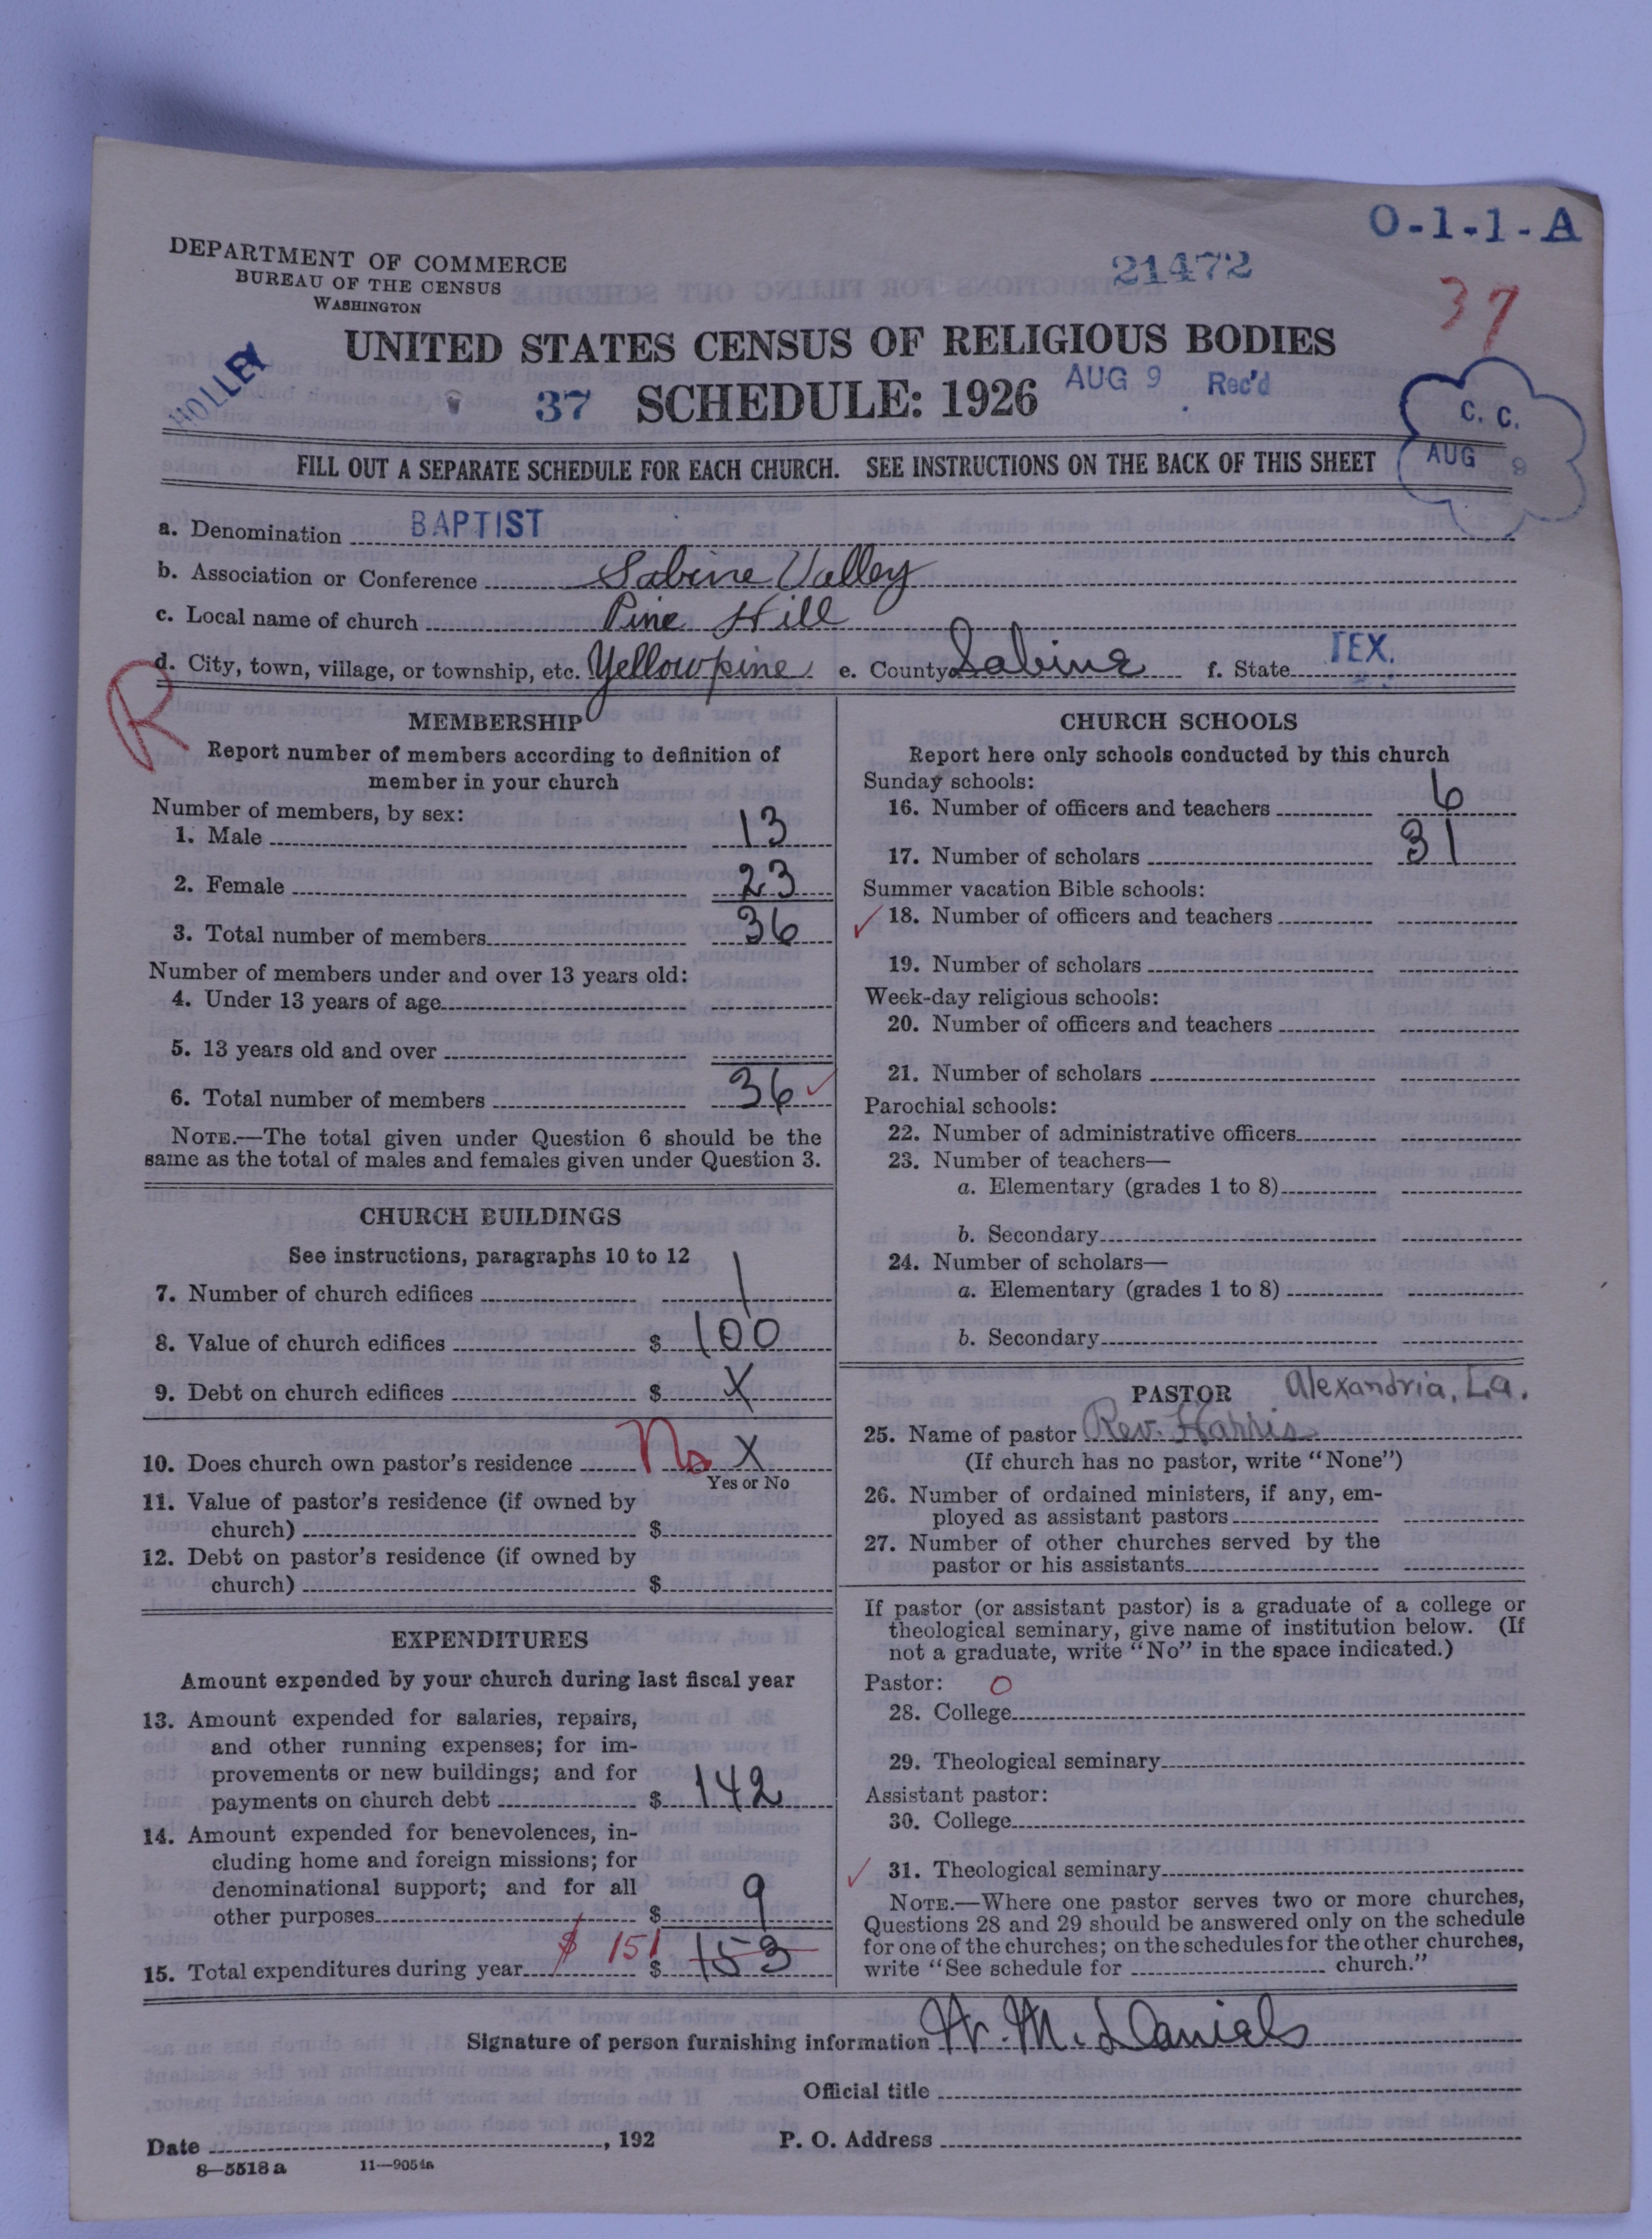 O-1-1-A
DEPARTMENT OF COMMERCE
BUREAU OF THE CENSUS
WASHINGTON
21472
37
UNITED STATES CENSUS OF RELIGIOUS BODIES
HOLLEY
37 SCHEDULE: 1926 AUG 9 Rec'd
C. C.
AUG 9
FILL OUT A SEPARATE SCHEDULE FOR EACH CHURCH. SEE INSTRUCTIONS ON THE BACK OF THIS SHEET
a. Denomination BAPTIST
b. Association or Conference Sabine Valley
c. Local name of church Pine Hill
d. City, town, village, or township, etc. Yellowpine e. County Sabine f. State TEX.
R
MEMBERSHIP
Report number of members according to definition of
member in your church
Number of members, by sex:
1. Male 13
2. Female 23
3. Total number of members 36
Number of members under and over 13 years old:
4. Under 13 years of age
5. 13 years old and over
6. Total number of members 36 ✓
NOTE.—The total given under Question 6 should be the
same as the total of males and females given under Question 3.
CHURCH BUILDINGS
See instructions, paragraphs 10 to 12
7. Number of church edifices 1
8. Value of church edifices $ 100
9. Debt on church edifices $ X
10. Does church own pastor's residence No X
Yes or No
11. Value of pastor's residence (if owned by
church) $
12. Debt on pastor's residence (if owned by
church) $
EXPENDITURES
Amount expended by your church during last fiscal year
13. Amount expended for salaries, repairs,
and other running expenses; for im-
provements or new buildings; and for
payments on church debt $ 142
14. Amount expended for benevolences, in-
cluding home and foreign missions; for
denominational support; and for all
other purposes $ 9
$ 151
15. Total expenditures during year $ 153
CHURCH SCHOOLS
Report here only schools conducted by this church
Sunday schools:
16. Number of officers and teachers 6
17. Number of scholars 31
Summer vacation Bible schools:
✓ 18. Number of officers and teachers
19. Number of scholars
Week-day religious schools:
20. Number of officers and teachers
21. Number of scholars
Parochial schools:
22. Number of administrative officers
23. Number of teachers—
a. Elementary (grades 1 to 8)
b. Secondary
24. Number of scholars—
a. Elementary (grades 1 to 8)
b. Secondary
PASTOR Alexandria, La.
25. Name of pastor Rev. Harris
(If church has no pastor, write "None")
26. Number of ordained ministers, if any, em-
ployed as assistant pastors
27. Number of other churches served by the
pastor or his assistants
If pastor (or assistant pastor) is a graduate of a college or
theological seminary, give name of institution below. (If
not a graduate, write "No" in the space indicated.)
Pastor: O
28. College
29. Theological seminary
Assistant pastor:
30. College
✓ 31. Theological seminary
NOTE.—Where one pastor serves two or more churches,
Questions 28 and 29 should be answered only on the schedule
for one of the churches; on the schedules for the other churches,
write "See schedule for church."
Signature of person furnishing information W. M. Daniels
Official title
Date , 192 P. O. Address
8—5518 a 11—9054a